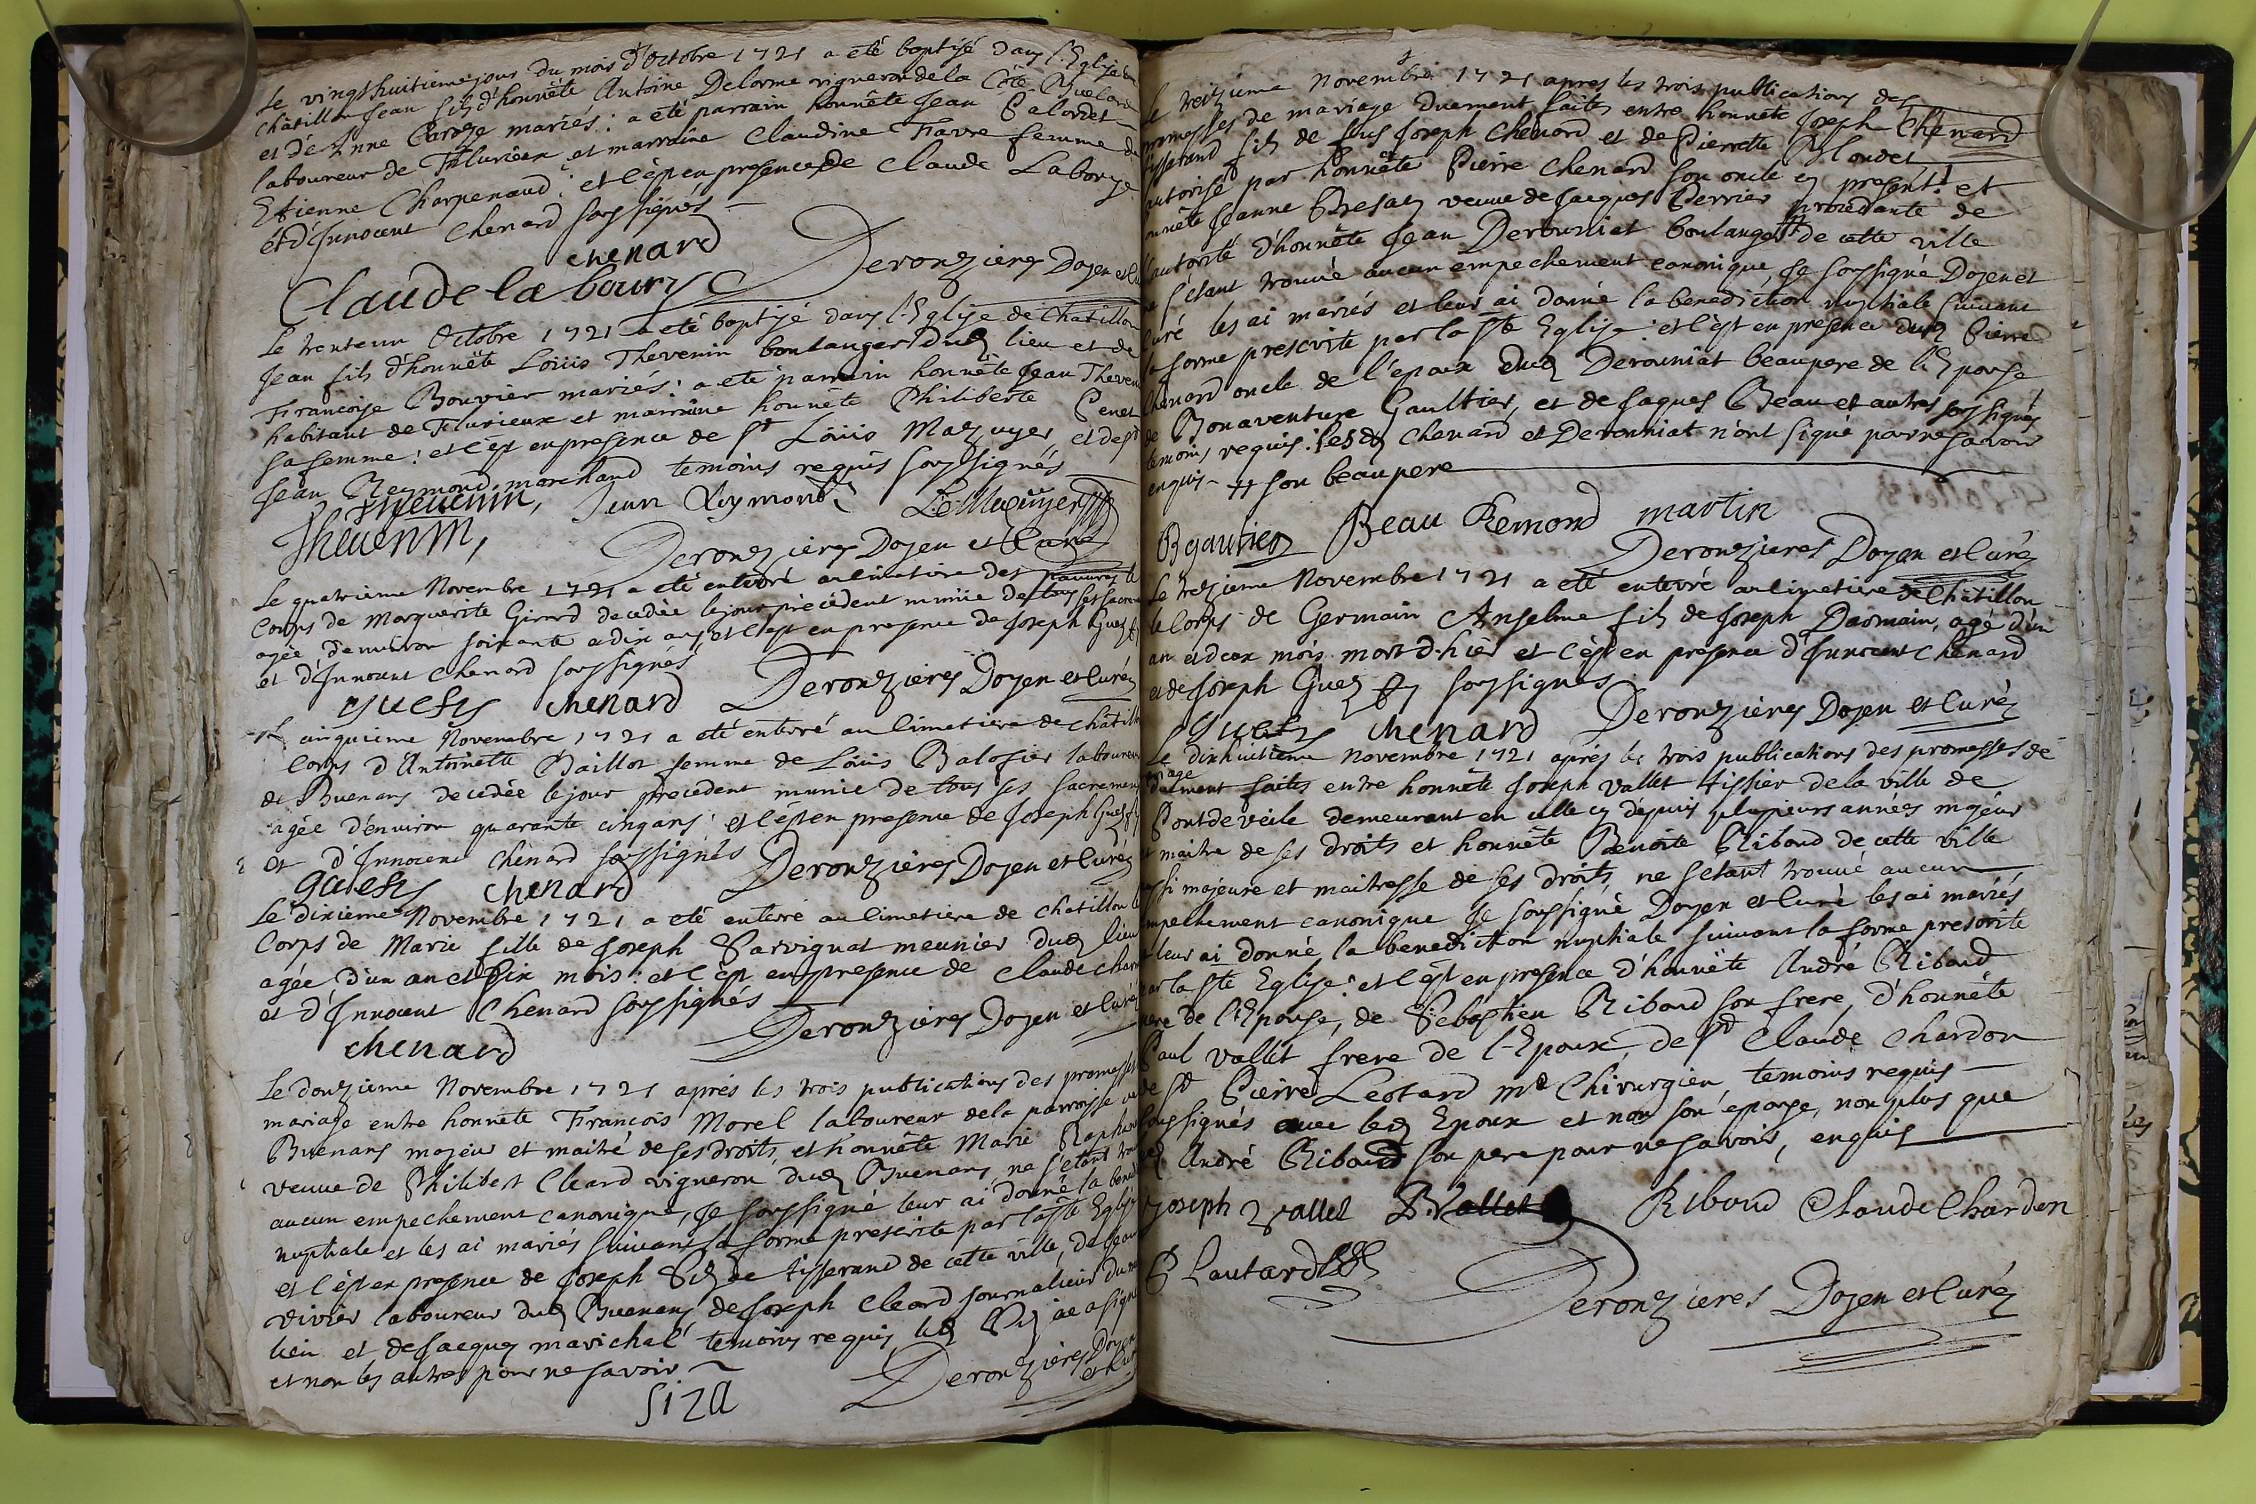 Le vingthuitieme jour du mois d'Octobre 1721 a eté baptisé dans l'Eglise de
Châtillon Jean fils d'honnête Antoine Delorme vigneron de la Côte
et de Anne mariés : a eté parrain honnête Jean
laboureur de Flurieux et marraine Claudine Favre femme de
Etienne Charpenaud : et c'est en presence de Claude Laborye
et d'Innocent Chenard soussignés
chenard
Claude la boury Deronzieres Doyen et Cu
Le trente un Octobre 1721 a eté baptisé dans l'Eglise de Chatillon
Jean fils d'honnête Loüis Thevenin boulanger dud lieu et de
Francoise Bouvier mariés : a eté parrain honnête Jean Theven
habitant de Flurieux et marraine honnête Philiberte
sa femme : et c'est en presence de Sr Loüis Mazuyer et de Sr
Jean Reymond marchand temoins requis soussignés
Thevenin, Jean Reymond L. Mazuyer
Thevenin, Deronzieres Doyen et Curé
Le quatrieme Novembre 1721 a eté enterré au Cimetiere des pauvres le
Corps de Marguerite Girard decedée le jour précédent munie de tous ses sacre
agée d'environ soixante a dix ans et c'est en presence de Joseph Guez
et d'Innocent Chenard soussignés
guesz chenard Deronzieres Doyen et Curé
cinquieme Novembre 1721 a eté enterré au Cimetiere de Châtill
Corps d'Antoinette Baillot femme de Loüis Balofier laboureur
de Buenans decedée le jour precedent munie de tous ses sacremens
agée d'environ quarante cinq ans : et c'est en presence de Joseph Guez
et d'Innocent Chenard soussignés Deronzieres Doyen et Curé
guesz chenard
Le dixieme Novembre 1721 a eté enterré au Cimetiere de Chatillon le
Corps de Marie fille de Joseph Sarvignat meunier dud lieu
agée d'un an et six mois : et c'est en presence de Claude
et d'Innocent Chenard soussignés
chenard Deronzieres Doyen et Curé
Le douzieme Novembre 1721 aprés les trois publications des promesses
mariage entre honnête François Morel laboureur de la parroisse
Buenans majeur et maitre de ses droits, et honnête Marie
veuve de Philibert Cleard vigneron dud Buenans, ne s'etant
aucun empechement canonique, Je soussigné leur ai donné la bened
nuptiale et les ai mariés suivant la forme prescrite par la Ste Eglise
et c'est en presence de Joseph tisserand de cette ville, de Jean
Vivier laboureur dud Buenans de Joseph Cleard journalier du
lieu et de Jacques marichal temoins requis, led a signé
et non les autres pour ne savoir
siza Deronzieres Doyen et Curé
Le treizieme Novembre 1721 apres les trois publications des
promesses de mariage duement faites entre honnête Joseph Chenard
tisserand fils de fus Joseph Chenard et de Pierrette Blondel
autorisé par honnête Pierre Chenard son oncle cy present : et
honnête Jeanne Bresac veuve de Jacques Perrier procedante de
l'autorité d'honnête Jean Derouniat boulanger # de cette ville
ne s'etant trouvé aucun empechement canonique, Je soussigné Doyen et
Curé les ai mariés et leur ai donné la benediction nuptiale suivant
la forme prescrite par la Ste Eglise : et c'est en presence dud Pierre
Chenard oncle de l'epoux dud Derouniat beaupere de l'Epouse
de Bonaventure Gaultier, et de Jaques Beau et autres soussignés
temoins requis : lesd Chenard et Derouniat n'ont signé pour ne savoir
enquis - # son beaupere
Bgautier Beau Remond martin
Deronzieres Doyen et Curé
Le trezieme Novembre 1721 a eté enterré au Cimetiere de Châtillon
le Corps de Germain Anselme fils de Joseph Darmain, agé d'un
an et deux mois mort d'hier et c'est en presence d'Innocent Chenard
et de Joseph Guez soussignés
guesz chenard Deronzieres Doyen et Curé
Le dixhuitieme Novembre 1721 aprés les trois publications des promesses de
mariage
duement faites entre honnête Joseph Vallet tissier de la ville de
Pontdeveile demeurant en cette cy depuis plusieurs années majeur
et maitre de ses droits et honnête Benoite Riboud de cette ville
aussi majeure et maitresse de ses droits, ne s'etant trouvé aucun
empechement canonique Je soussigné Doyen et Curé les ai mariés
et leur ai donné la benediction nuptiale suivant la forme prescrite
par la Ste Eglise : et c'est en presence d'honnête André Riboud
pere de l'Epouse, de Sebastien Riboud son frere, d'honnête
Paul Vallet frere de l'Epoux, de Sr Claude Chardon
de Sr Pierre Leotard Me Chirurgien, temoins requis
soussignés avec led Epoux et non son epouse, non plus que
led André Riboud son pere pour ne savoir, enquis
Joseph Vallet P. Vallet Riboud Claude Chardon
P Lautard
Deronzieres Doyen et Curé